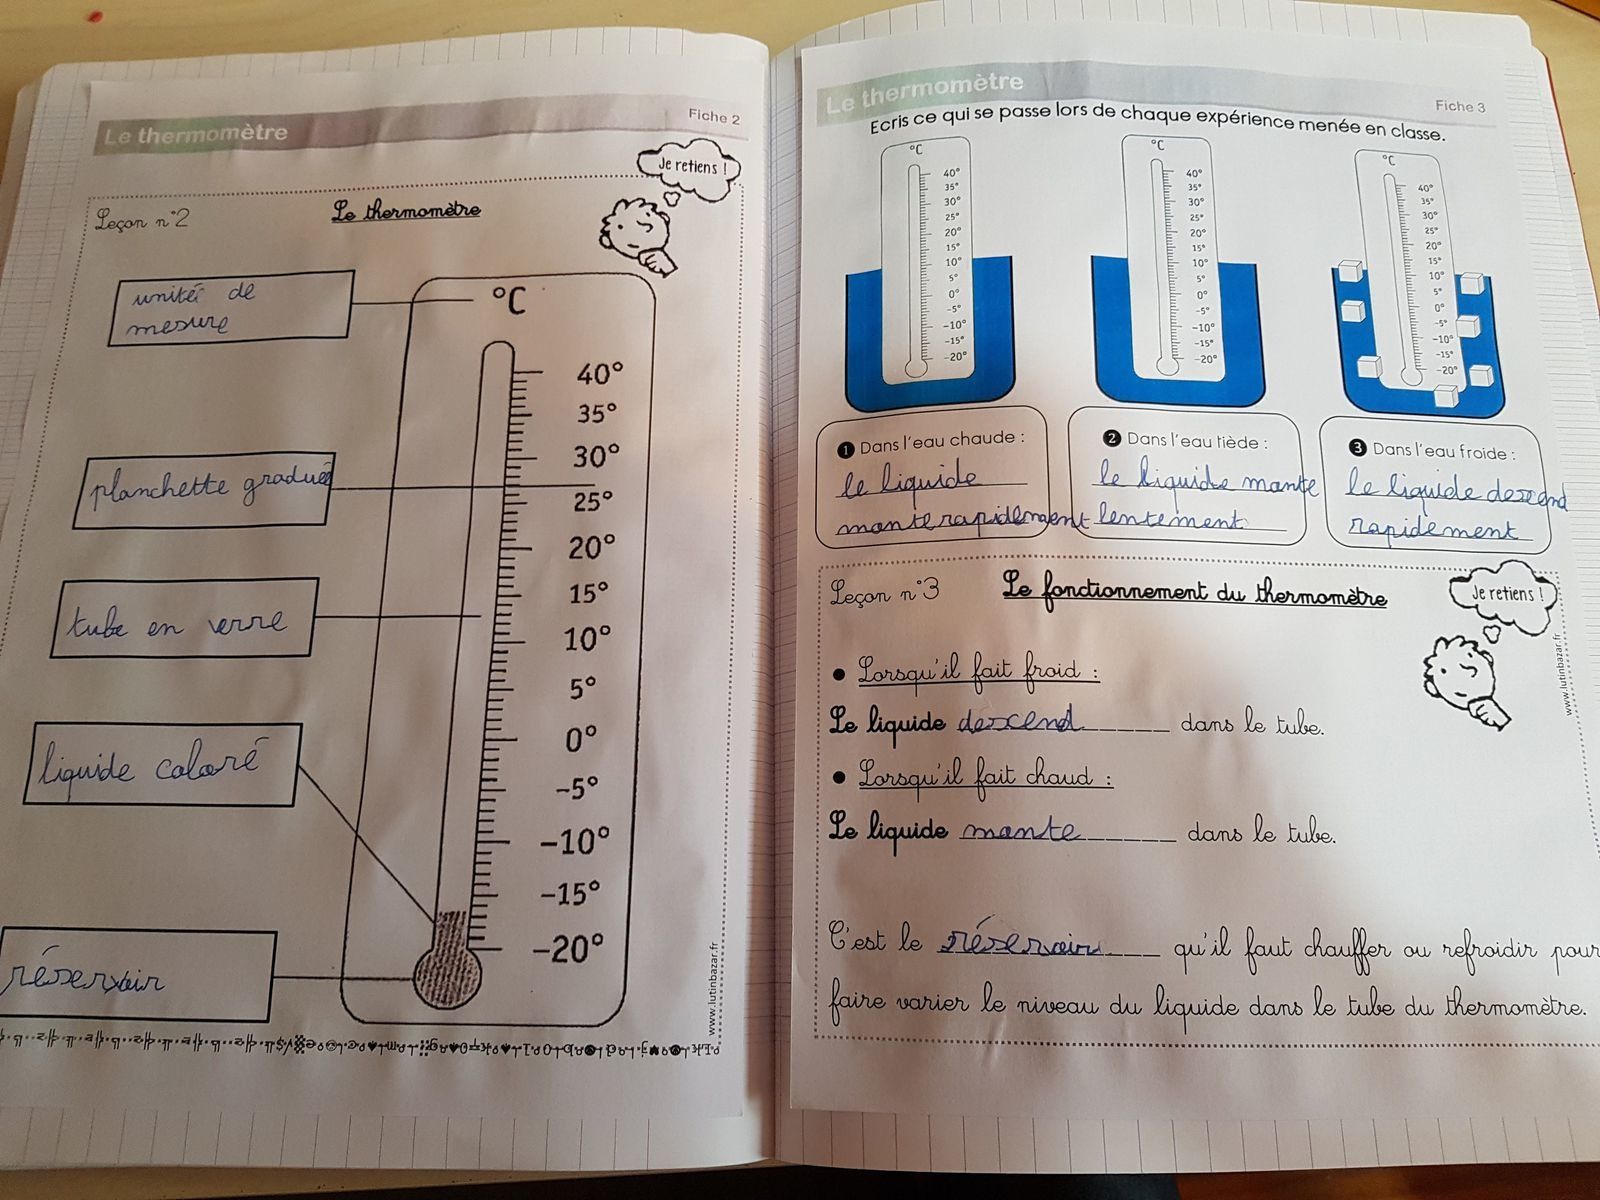 Le thermomètre
Fiche 2
Je retiens !
Leçon n°2
Le thermomètre
unitée de
mesure
planchette graduée
tube en verre
liquide coloré
réservoir
°C
40°
35°
30°
25°
20°
15°
10°
5°
0°
-5°
-10°
-15°
-20°
www.lutinbazar.fr
Le thermomètre
Fiche 3
Ecris ce qui se passe lors de chaque expérience menée en classe.
°C
40°
35°
30°
25°
20°
15°
10°
5°
0°
-5°
-10°
-15°
-20°
°C
40°
35°
30°
25°
20°
15°
10°
5°
0°
-5°
-10°
-15°
-20°
°C
40°
35°
30°
25°
20°
15°
10°
5°
0°
-5°
-10°
-15°
-20°
1 Dans l'eau chaude :
le liquide
monte rapidement
2 Dans l'eau tiède :
le liquide monte
lentement
3 Dans l'eau froide :
le liquide descend
rapidement
Leçon n°3
Le fonctionnement du thermomètre
Je retiens !
www.lutinbazar.fr
• Lorsqu'il fait froid :
Le liquide descend dans le tube.
• Lorsqu'il fait chaud :
Le liquide monte dans le tube.
C'est le réservoir qu'il faut chauffer ou refroidir pour
faire varier le niveau du liquide dans le tube du thermomètre.